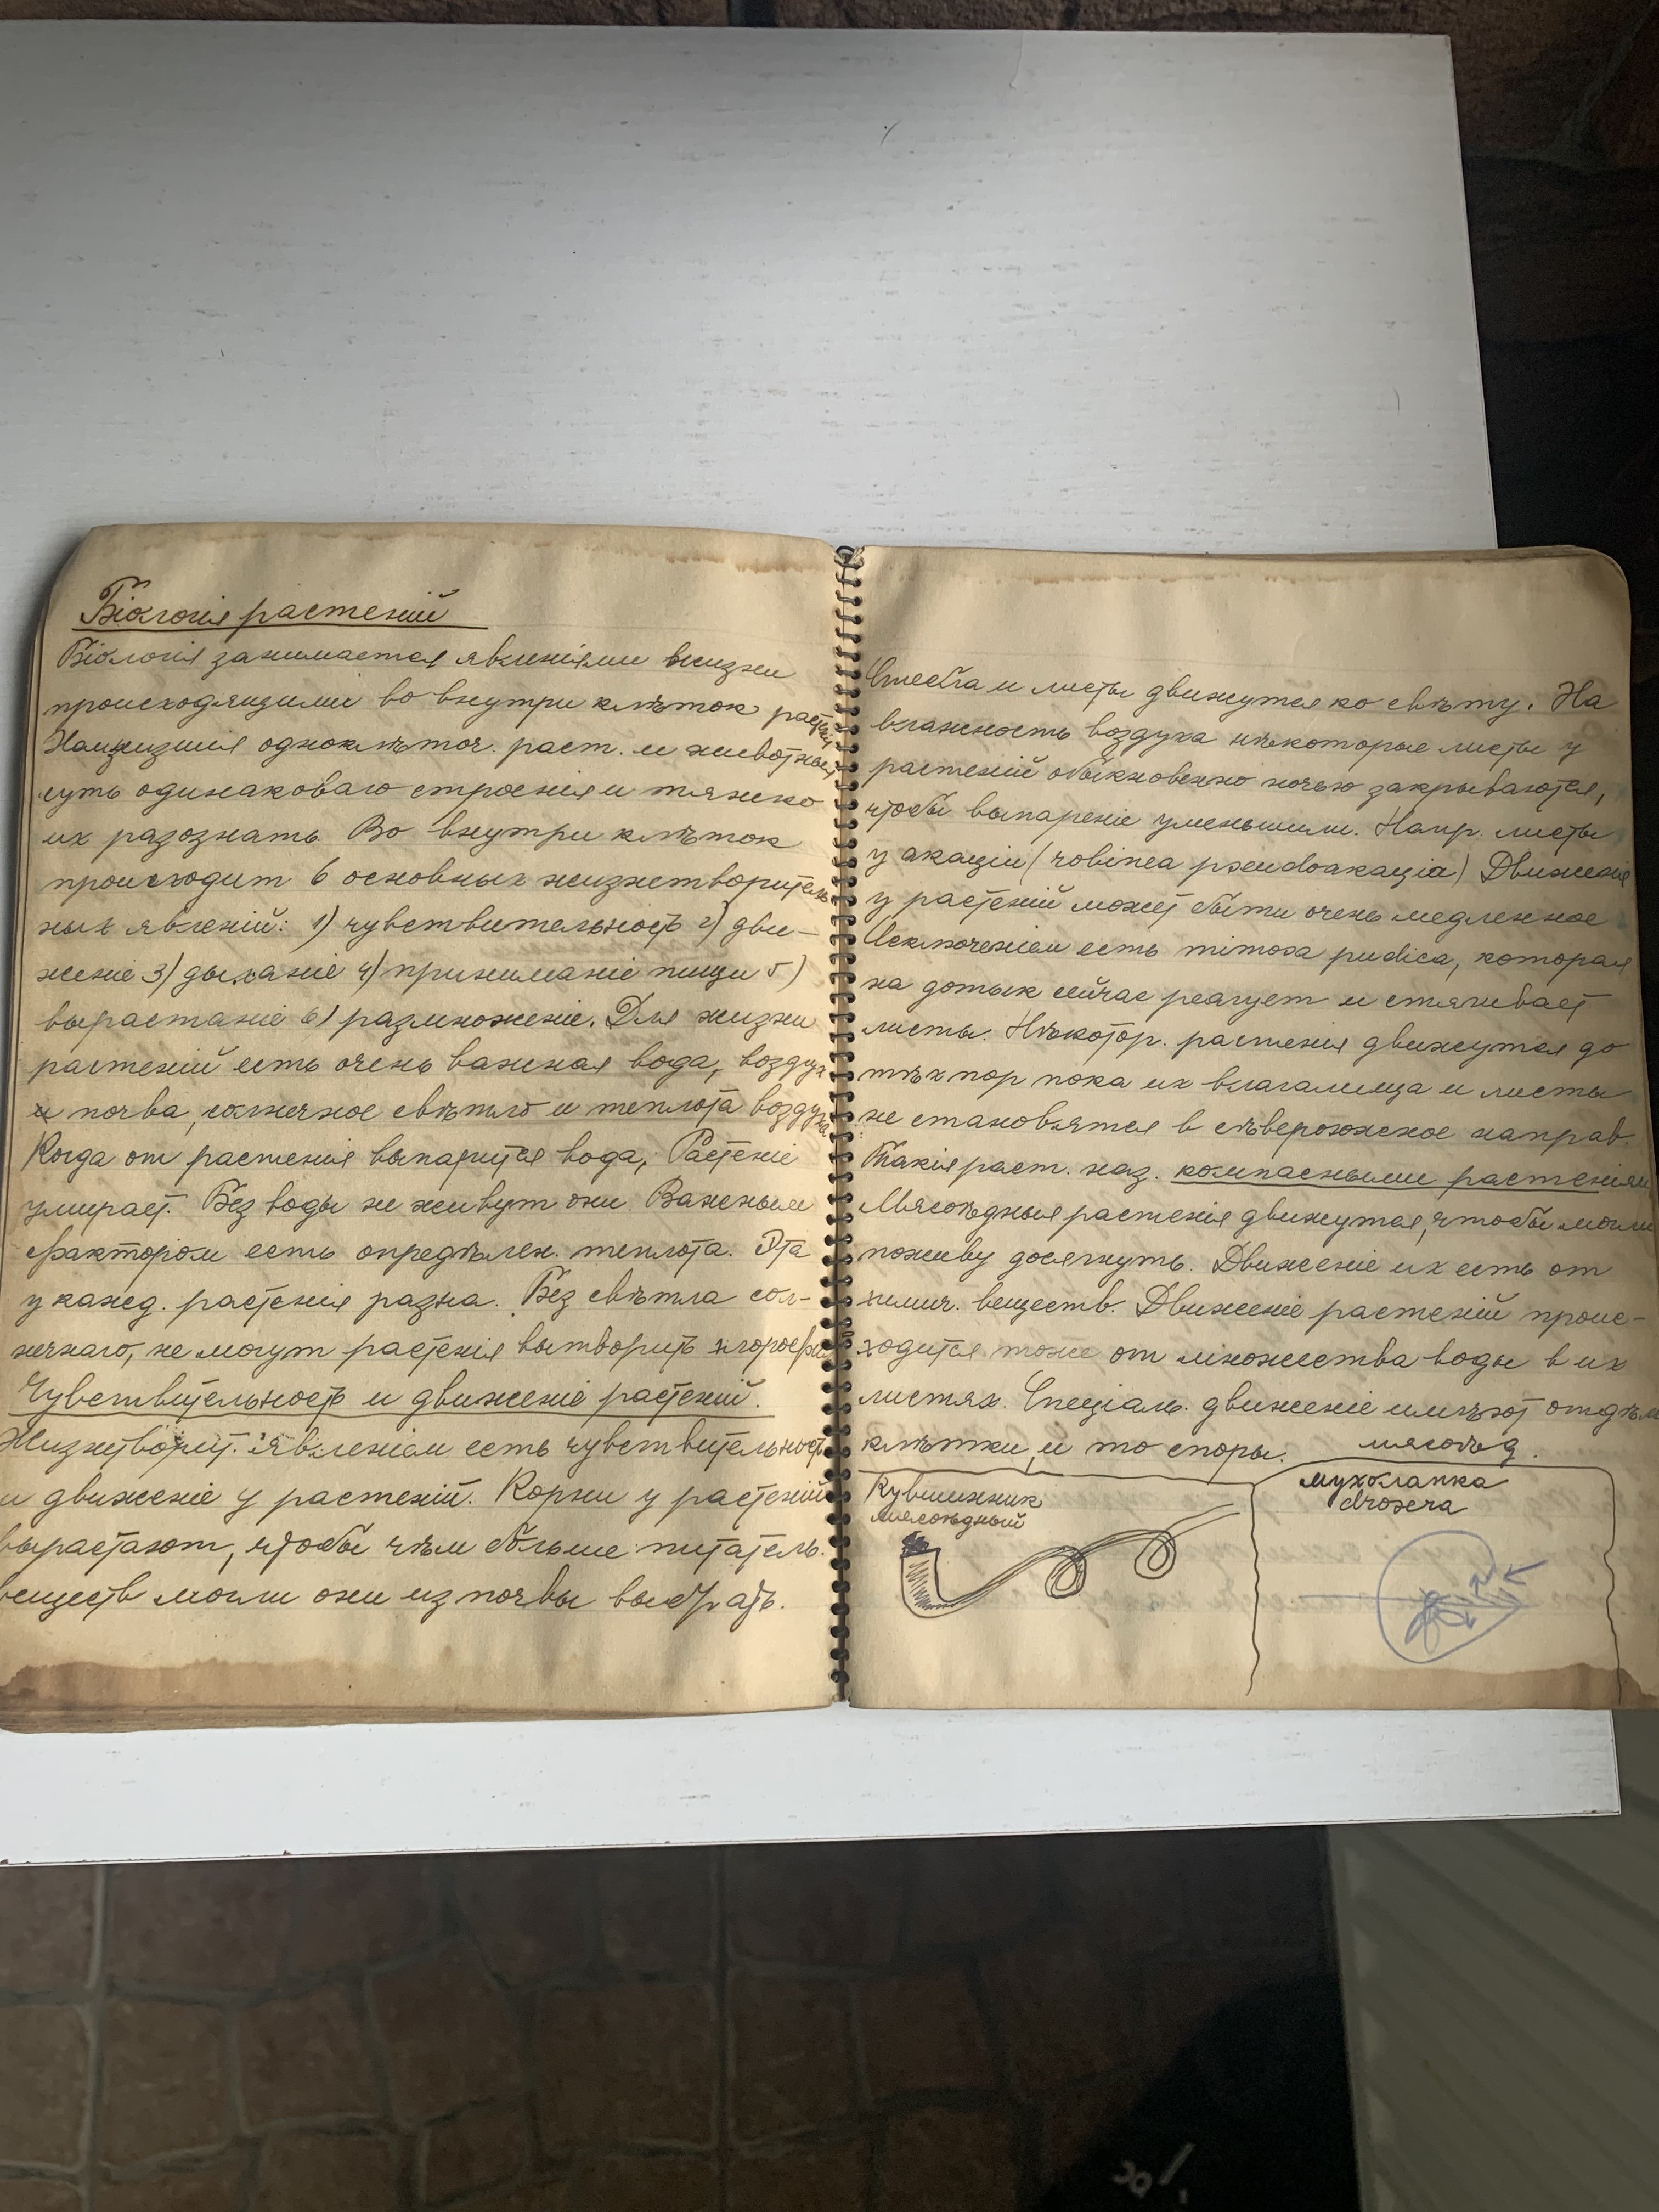 Біологія растеній
Біологія занимается явленіями жизни
происходящими во внутри клѣток растен.
Наинизшія одноклѣточ. раст. и животныя
суть одинаковаго строенія и тяжко
их разознать. Во внутри клѣток
происходит 6 основных жизнетворитель
ных явленій: 1) чувствительность 2) дви-
женіе 3) дыханіе 4) приниманіе пищи 5)
вырастаніе 6) размноженіе. Для жизни
растеній есть очень важная вода, воздух
и почва, солнечное свѣтло и теплота воздуха
Когда от растенія выпарится вода, Растеніе
умирает. Без воды не живут они. Важным
фактором есть опредѣлен. теплота. Эта
у кажд. растенія разна. Без свѣтла сол-
нечнаго, не могут растенія вытворить хлорофил
Чувствительность и движеніе растеній.
Жизнетворит. явленіем есть чувствительность
и движеніе у растеній. Корни у растеній
вырастают, чтобы чѣм больше питатель.
веществ могли они из почвы выбрать.
Стебла и листы движутся ко свѣту. На
влажность воздуха нѣкоторые листы у
растеній обыкновенно ночью закрываются,
чтобы выпареніе уменьшили. Напр. листы
у акаціи (robinea pseudoакаціа) Движеніе
у растеній может быти очень медленное
Исключеніем есть mimosa pudica, которая
на дотык сейчас реагует и стягивает
листы. Нѣкотор. растенія движутся до
тѣх пор пока их влагалища и листы
не становятся в сѣверояжное направ.
Такія раст. наз. компасными растеніями
Мясоѣдныя растенія движутся, чтобы могли
поживу досягнуть. Движеніе их есть от
химич. веществ. Движеніе растеній проис-
ходится тоже от множества воды в их
листях. Спеціаль. движеніе имѣют отдѣл.
клѣтки, и то споры.
мясоѣд.
Кувшинник
мясоѣдный
мухолапка
drosera